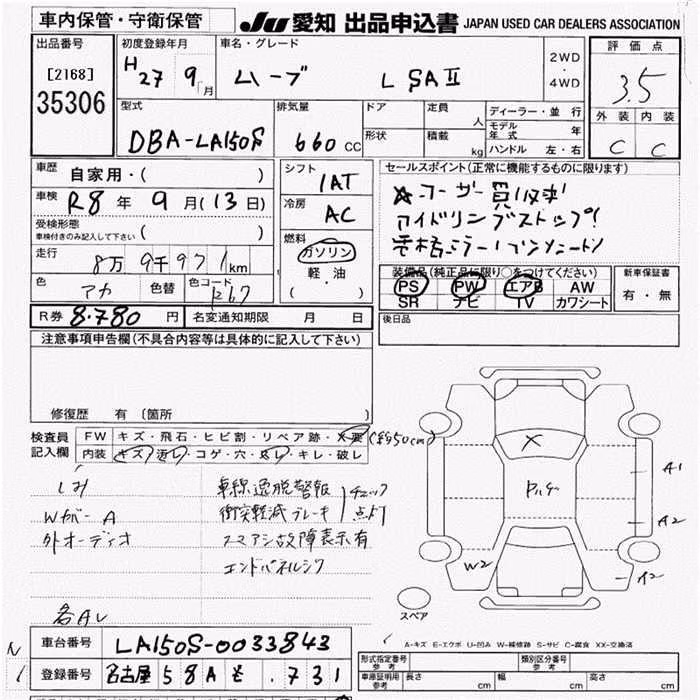 車内保管・守衛保管
JU 愛知 出品申込書 JAPAN USED CAR DEALERS ASSOCIATION
出品番号
[2168]
35306
初度登録年月
H27 9月
車名・グレード
ムーブ L SAⅡ
2WD
・
4WD
評価点
3.5
外装 内装
C C
型式
DBA-LA150S
排気量
660 CC
ドア
形状
定員 人
積載 kg
ディーラー・並行
モデル年式 年
ハンドル 左・右
車歴 自家用・( )
車検 R8 年 9 月 (13 日)
受検形態
車検付きのみ記入して下さい ( )
走行 8万 9千 971 km
色 アカ 色替 色コード R67
シフト 1AT
冷房 AC
燃料
ガソリン
軽・油
( )
セールスポイント(正常に機能するものに限ります)
☆ユーザー買収車!
アイドリングストップ!
装備品(純正品に限り○をつけてください)
PS PW エアB AW
SR ナビ TV カワシート
新車保証書
有・無
R券 8.780 円 名変通知期限 月 日
後日品
注意事項申告欄(不具合内容等は具体的に記入して下さい)
修復歴 有 〔箇所 〕
検査員
記入欄
FW キズ・飛石・ヒビ割・リペア跡・X要 (約50cm)
内装 キズ・汚レ・コゲ・穴・スレ・キレ・破レ
しみ
Wカバー A
外オーディオ
各AL
車線逸脱警報
衝突軽減ブレーキ
チェック
点灯
スマアシ故障表示有
エンドパネルシワ
A1
A2
W2
A2
X
スペア
A-キズ E-エクボ U-凹み W-補修跡 S-サビ C-腐食 XX-交換済
車台番号 LA150S-0033843
登録番号 名古屋 58A を .731
形式指定番号
参考
類別区分番号
参考
車庫証明用
参考
長さ cm 幅 cm 高さ cm